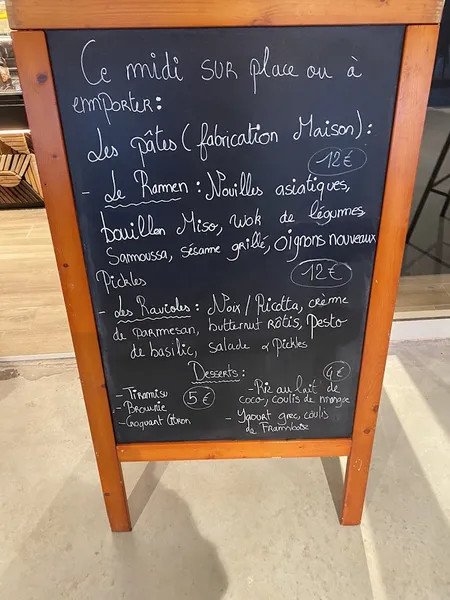 Ce midi sur place ou à
emporter:
Les pâtes (fabrication Maison):
12€
- Le Ramen : Nouilles asiatiques,
bouillon Miso, wok de légumes
Samoussa, sésame grillé, oignons nouveaux
Pickles
12€
- Les Ravioles : Noix / Ricotta, crème
de parmesan, butternut rôtis, Pesto
de basilic, salade & Pickles
Desserts :
- Tiramisu
- Brownie
- Croquant Citron
5€
4€
- Riz au lait de
coco, coulis de mangue
- Yaourt grec, coulis
de Framboise